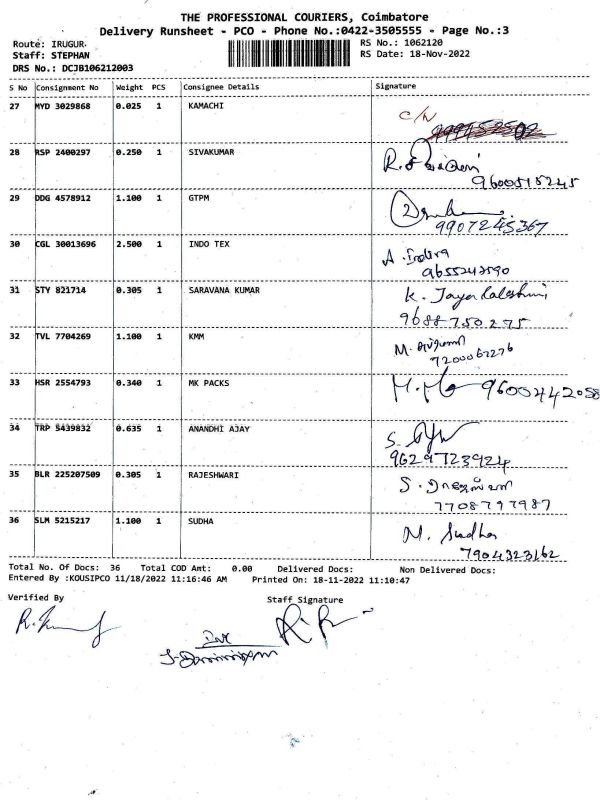 THE PROFESSIONAL COURIERS, Coimbatore
Delivery Runsheet - PCO - Phone No.:0422-3505555 - Page No.:3
Route: IRUGUR RS No.: 1062120
Staff: STEPHAN RS Date: 18-Nov-2022
DRS No.: DCJB106212003
S No Consignment No Weight PCS Consignee Details Signature
27 MYD 3029868 0.025 1 KAMACHI
C/N
28 RSP 2400297 0.250 1 SIVAKUMAR
9600515245
29 DDG 4578912 1.100 1 GTPM
9907245367
30 CGL 30013696 2.500 1 INDO TEX
A. Indira
9655243590
31 STY 821714 0.305 1 SARAVANA KUMAR K. Jayalakshmi
9688750275
32 TVL 7704269 1.100 1 KMM
7200062276
33 HSR 2554793 0.340 1 MK PACKS 9600442058
34 TRP 5439832 0.635 1 ANANDHI AJAY
9629723924
35 BLR 225207509 0.305 1 RAJESHWARI
7708797987
36 SLM 5215217 1.100 1 SUDHA M. Sudha
7904323162
Total No. Of Docs: 36 Total COD Amt: 0.00 Delivered Docs: Non Delivered Docs:
Entered By :KOUSIPCO 11/18/2022 11:16:46 AM Printed On: 18-11-2022 11:10:47
Verified By Staff Signature